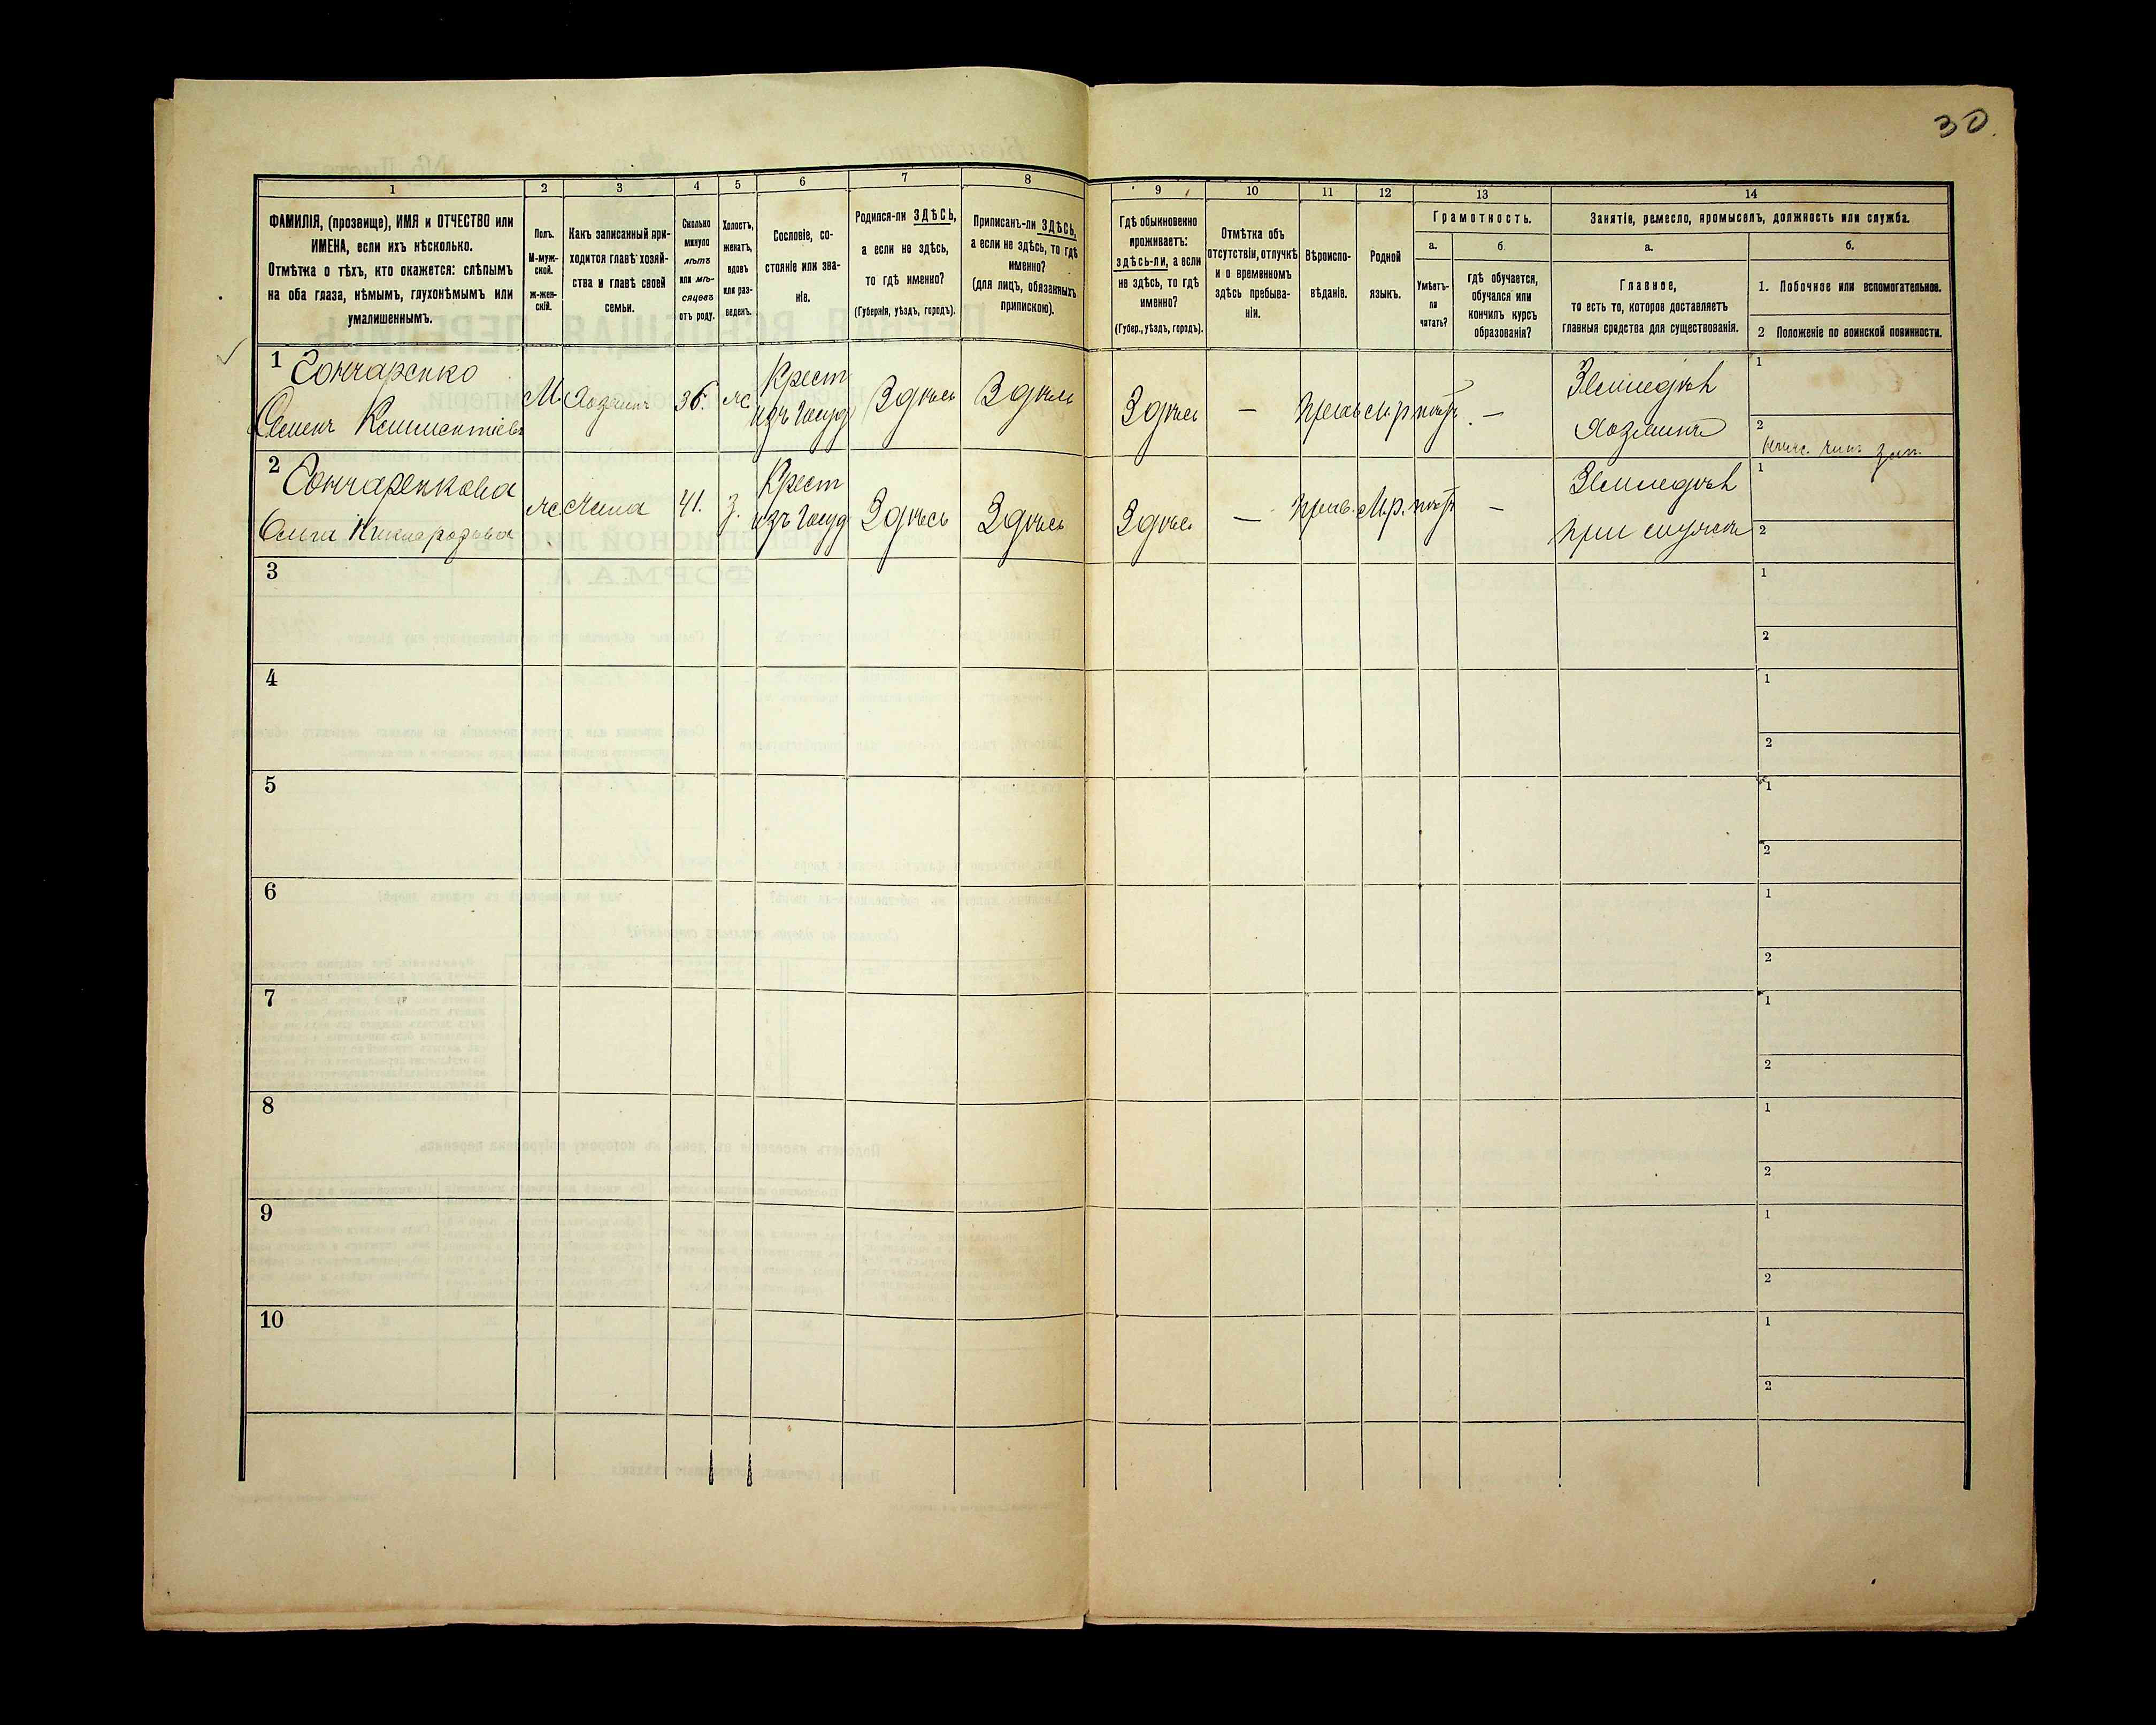 30.
1 2 3 4 5 6 7 8 9 10 11 12 13 14
ФАМИЛІЯ, (прозвище), ИМЯ и ОТЧЕСТВО или
ИМЕНА, если ихъ нѣсколько.
Отмѣтка о тѣхъ, кто окажется: слѣпымъ
на оба глаза, нѣмымъ, глухонѣмымъ или
умалишеннымъ.
Полъ.
М-муж-
ской.
ж-жен-
скій.
Какъ записанный при-
ходится главѣ хозяй-
ства и главѣ своей
семьи.
Сколько
минуло
лѣтъ
или мѣ-
сяцевъ
отъ роду.
Холостъ,
женатъ,
вдовъ
или раз-
веденъ.
Сословіе, со-
стояніе или зва-
ніе.
Родился-ли ЗДѢСЬ,
а если не здѣсь,
то гдѣ именно?
(Губернія, уѣздъ, городъ).
Приписанъ-ли ЗДѢСЬ,
а если не здѣсь, то гдѣ
именно?
(для лицъ, обязанныхъ
припискою).
Гдѣ обыкновенно
проживаетъ:
здѣсь-ли, а если
не здѣсь, то гдѣ
именно?
(Губер., уѣздъ, городъ).
Отмѣтка объ
отсутствіи, отлучкѣ
и о временномъ
здѣсь пребыва-
ніи.
Вѣроиспо-
вѣданіе.
Родной
языкъ.
Грамотность.
а.
Умѣетъ-
ли
читать?
б.
гдѣ обучается,
обучался или
кончилъ курсъ
образованія?
Занятіе, ремесло, промыселъ, должность или служба.
а.
Главное,
то есть то, которое доставляетъ
главныя средства для существованія.
б.
1. Побочное или вспомогательное.
2 Положеніе по воинской повинности.
1 Гончаренко
Семенъ
М. Хозяинъ 36. ж.
Крест
изъ Госуд
Здѣсь Здѣсь Здѣсь — Прав М.р нѣтъ. —
Земледѣл
Хозяинъ
1
2
2 Гончаренкова
ж. Жена 41. з.
Крест
изъ Госуд
Здѣсь Здѣсь Здѣсь — Прав. М.р. нѣтъ —
Земледѣл
при мужѣ
1
2
3 1
2
4 1
2
5 1
2
6 1
2
7 1
2
8 1
2
9 1
2
10 1
2